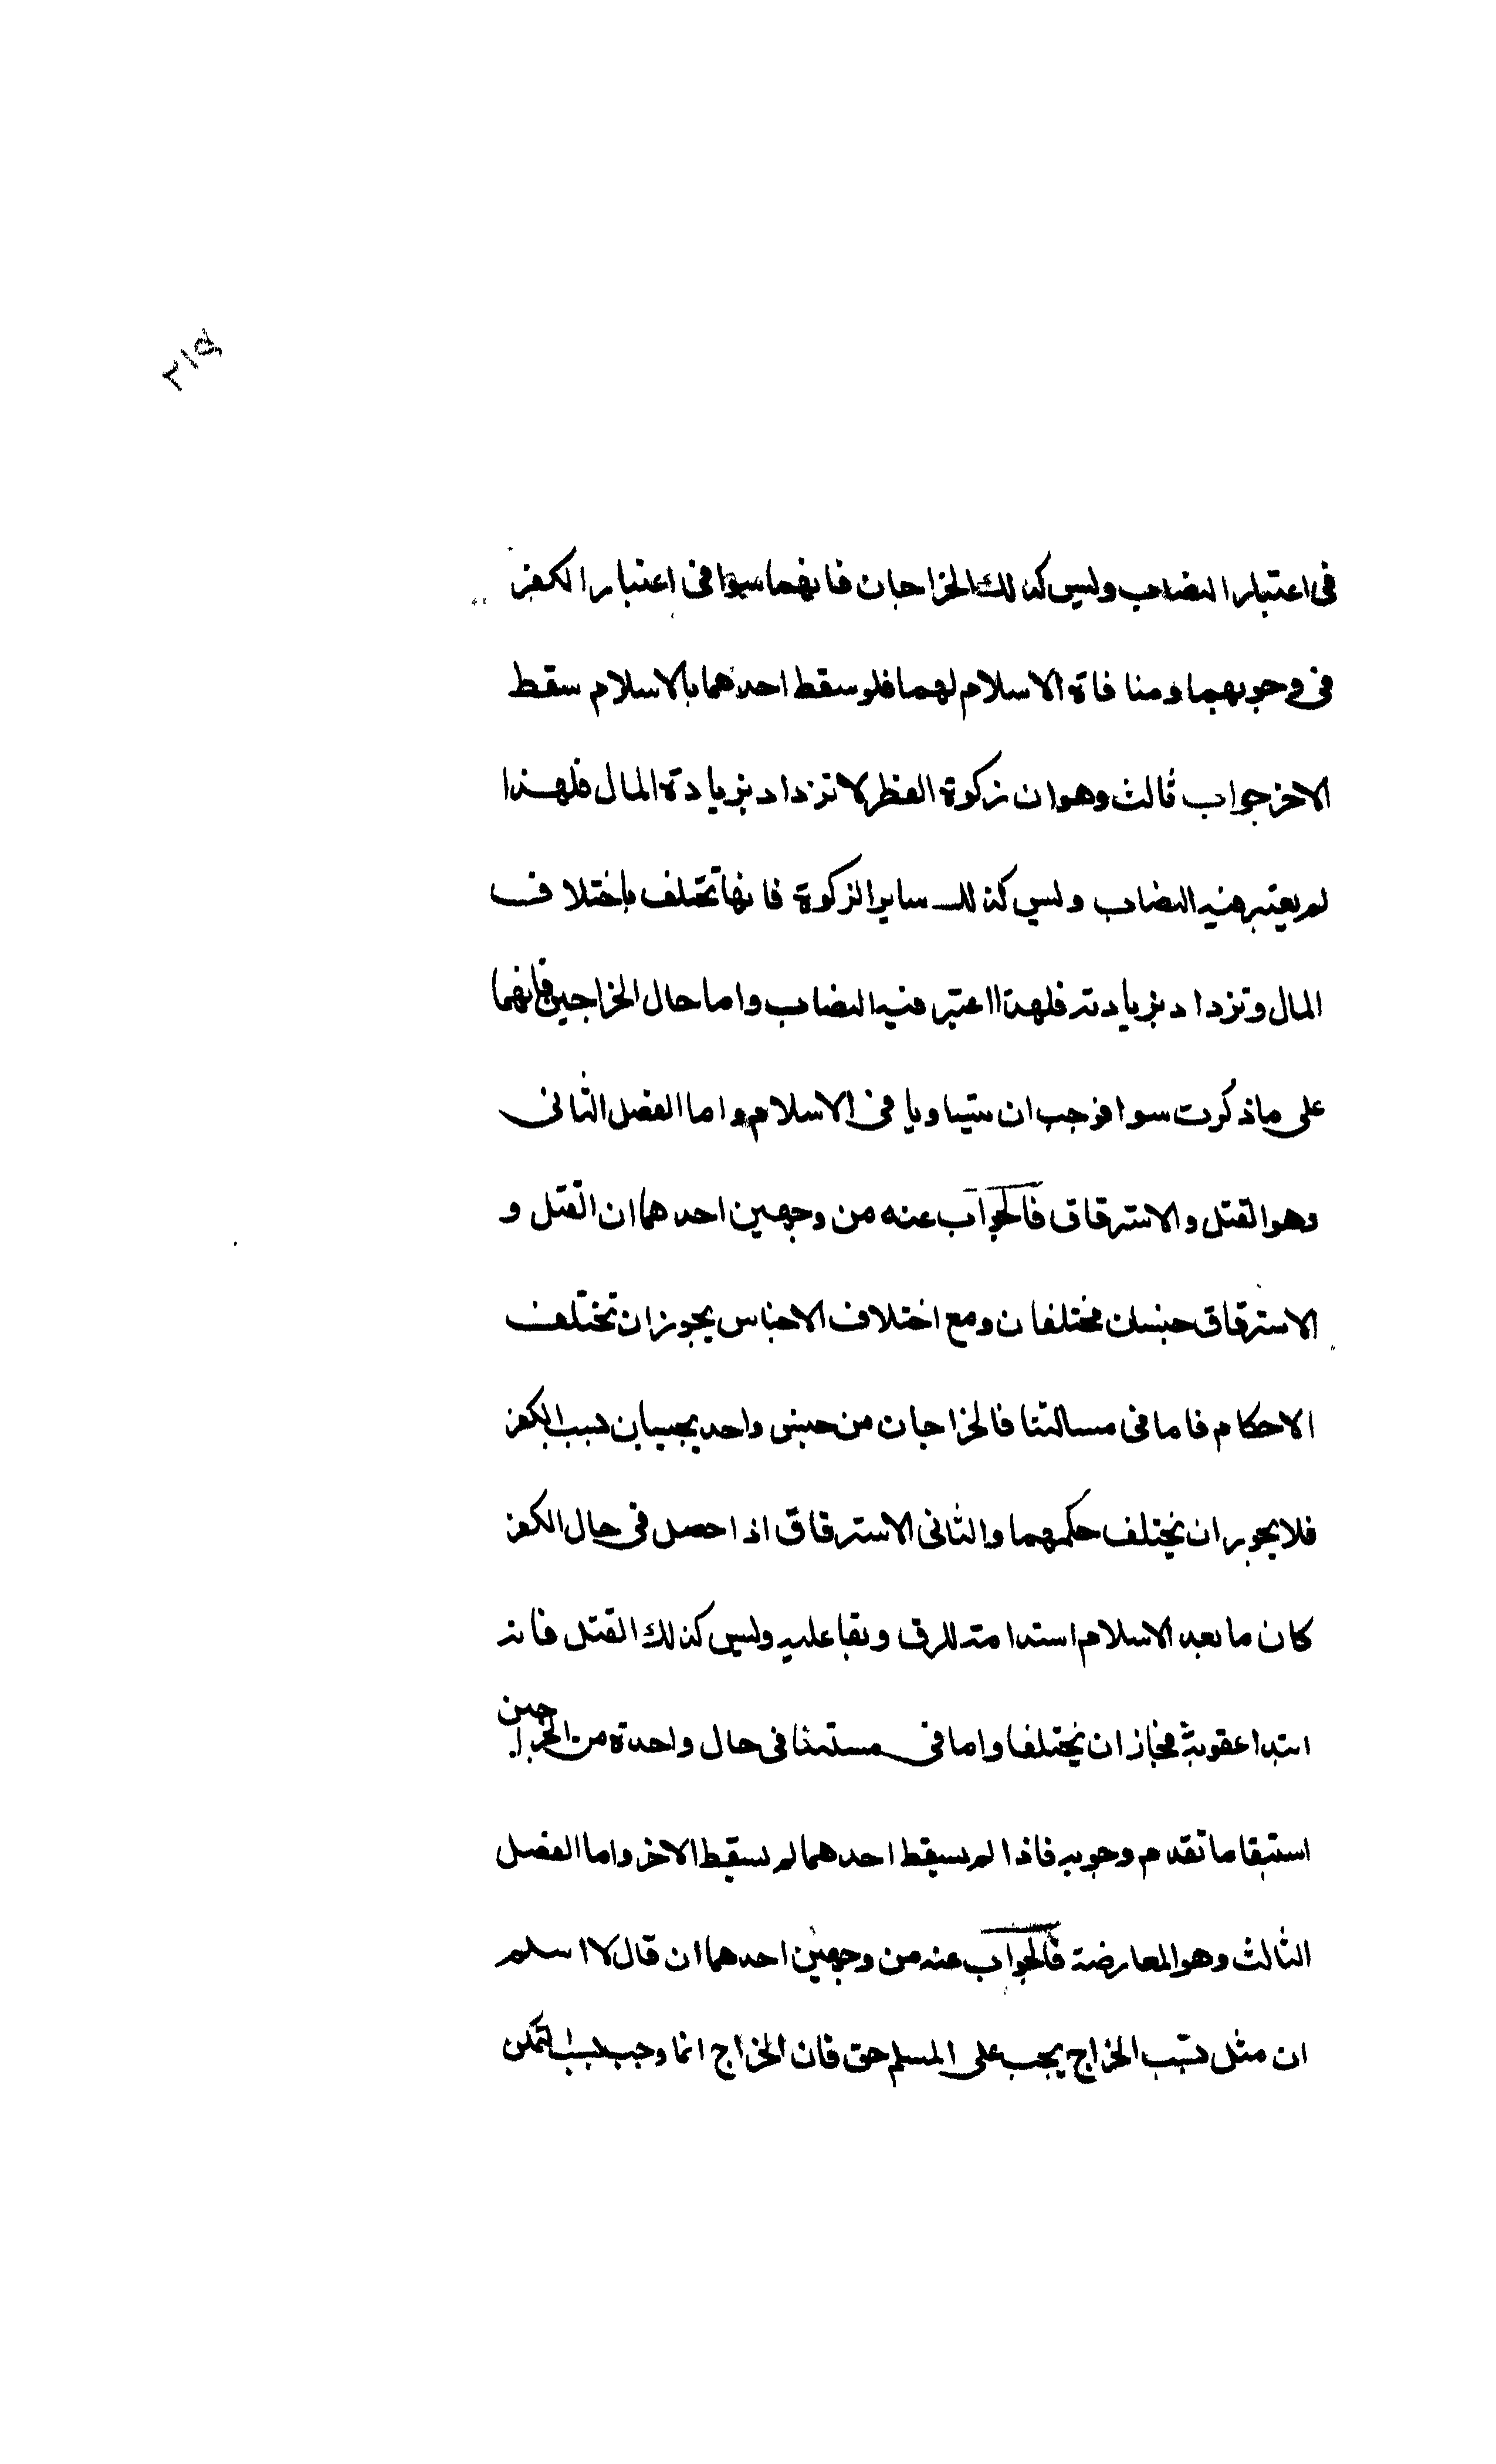 ٢١٥
فى اعتبار النصاب وليس كذلك الخراجان فانهما سوا فى اعتبار الكفر
فى وجوبهما ومنافاة الاسلام لهما فلو سقط احدهما بالاسلام سقط
الاخر جواب ثالث وهو ان زكوة الفطر لا تزداد بزيادة المال فلهذا
لم يعتبر فيه النصاب وليس كذلك ساير الزكوة فانها تختلف باختلاف
المال وتزداد بزيادته فلهذا اعتبر فيه النصاب واما حال الخراجين فانهما
على ما ذكرت سوا فوجب ان يتساويا فى الاسلام واما الفصل الثانى
وهو القتل والاسترقاق فالجواب عنه من وجهين احدهما ان القتل و
الاسترقاق جنسان مختلفان ومع اختلاف الاجناس يجوز ان تختلف
الاحكام فاما فى مسالتنا فالخراجان من جنس واحد يجبان بسبب الكفر
فلا يجوز ان يختلف حكمهما والثانى الاسترقاق اذا حصل فى حال الكفر
كان ما بعد الاسلام استدامة للرق وبقا عليه وليس كذلك القتل فانه
ابتدا عقوبة فجاز ان يختلفا واما فى مسئلتنا فى حال واحدة من الخراجين
استبقا ما تقدم وجوبه فاذا لم يسقط احدهما لم يسقط الاخر واما الفصل
الثالث وهو المعارضة فالجواب عنه من وجهين احدهما ان قال لا اسلم
ان مثل سبب الخراج يجب على المسلم حتى فان الخراج انما وجب بسبب التمكن